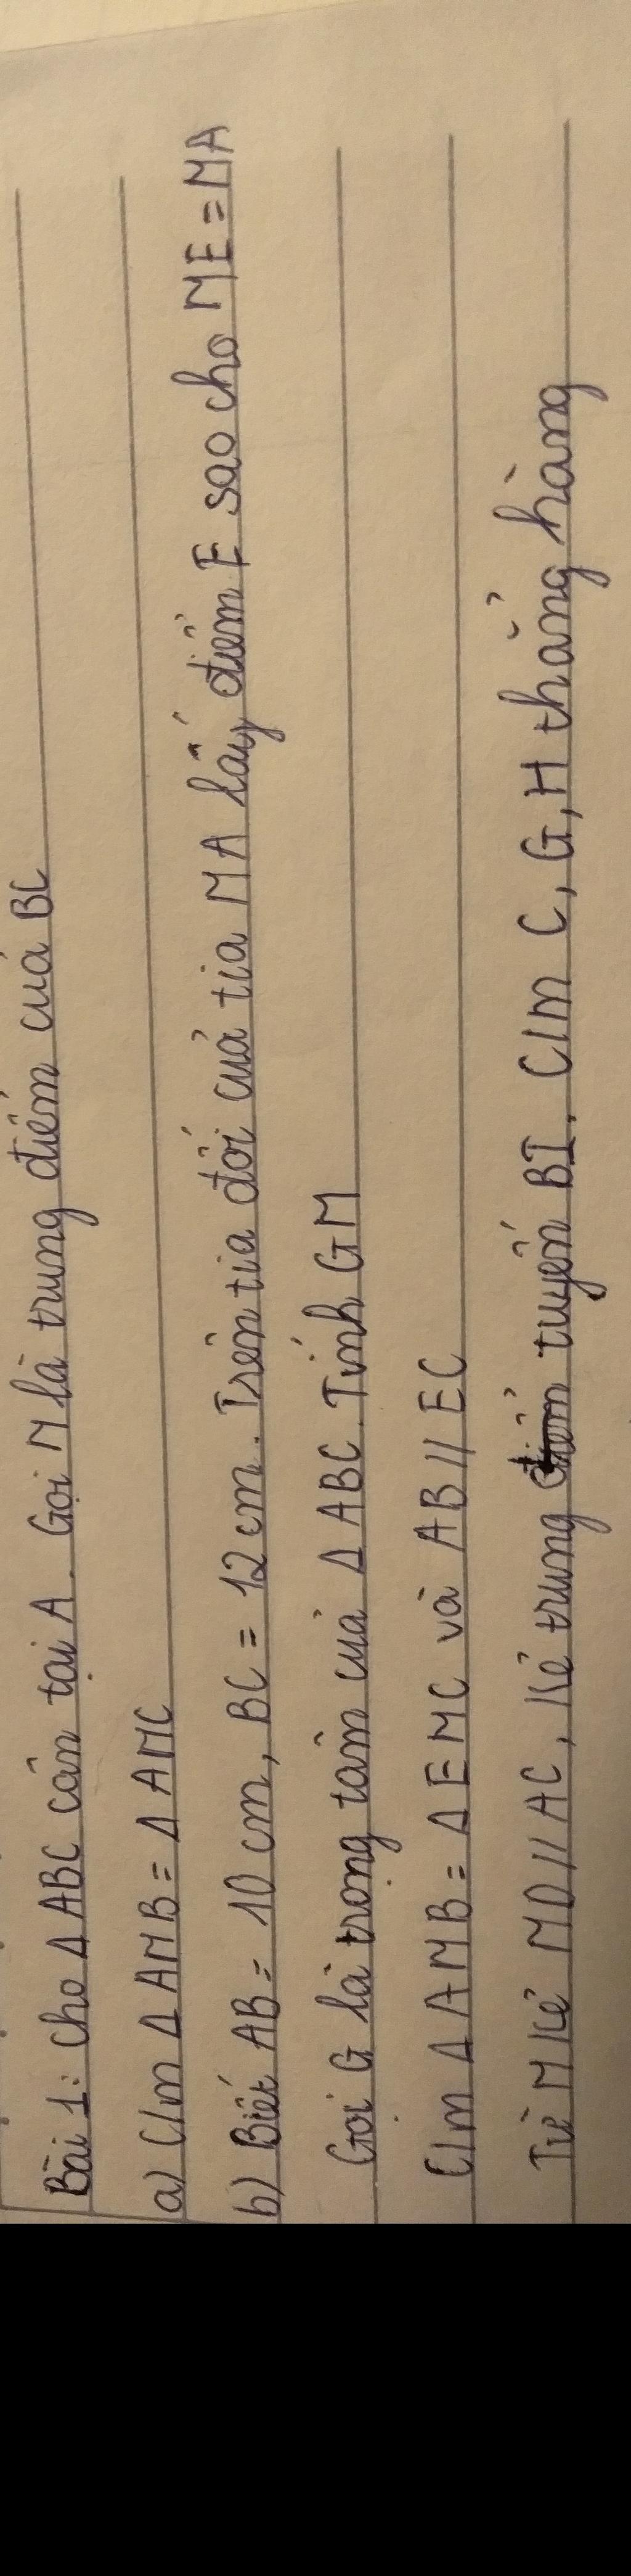 Bài 1: Cho Δ ABC cân tại A. Gọi M là trung điểm của BC
a) C/m Δ AMB = Δ AMC
b) Biết AB = 10 cm, BC = 12 cm. Trên tia đối của tia MA lấy điểm E sao cho ME = MA
Gọi G là trọng tâm của Δ ABC. Tính GM
C/m Δ AMB = Δ EMC và AB // EC
Từ M kẻ MD // AC, kẻ trung tuyến BI. C/m C, G, H thẳng hàng